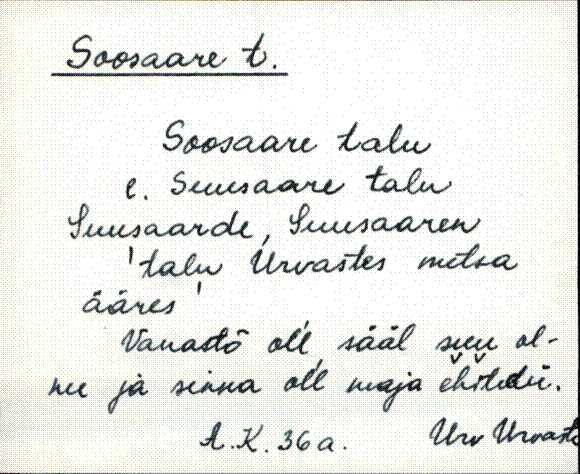 Soosaare t.
Soosaare talu
e. Suusaare talu
Suusaarde, Suusaaren
'talu Urvastes metsa
ääres'
Vanastõ oĺĺ sääl suu ol-
nu ja sinna oĺĺ maja ĕhitedü.
A.K. 36a. Urv Urvaste